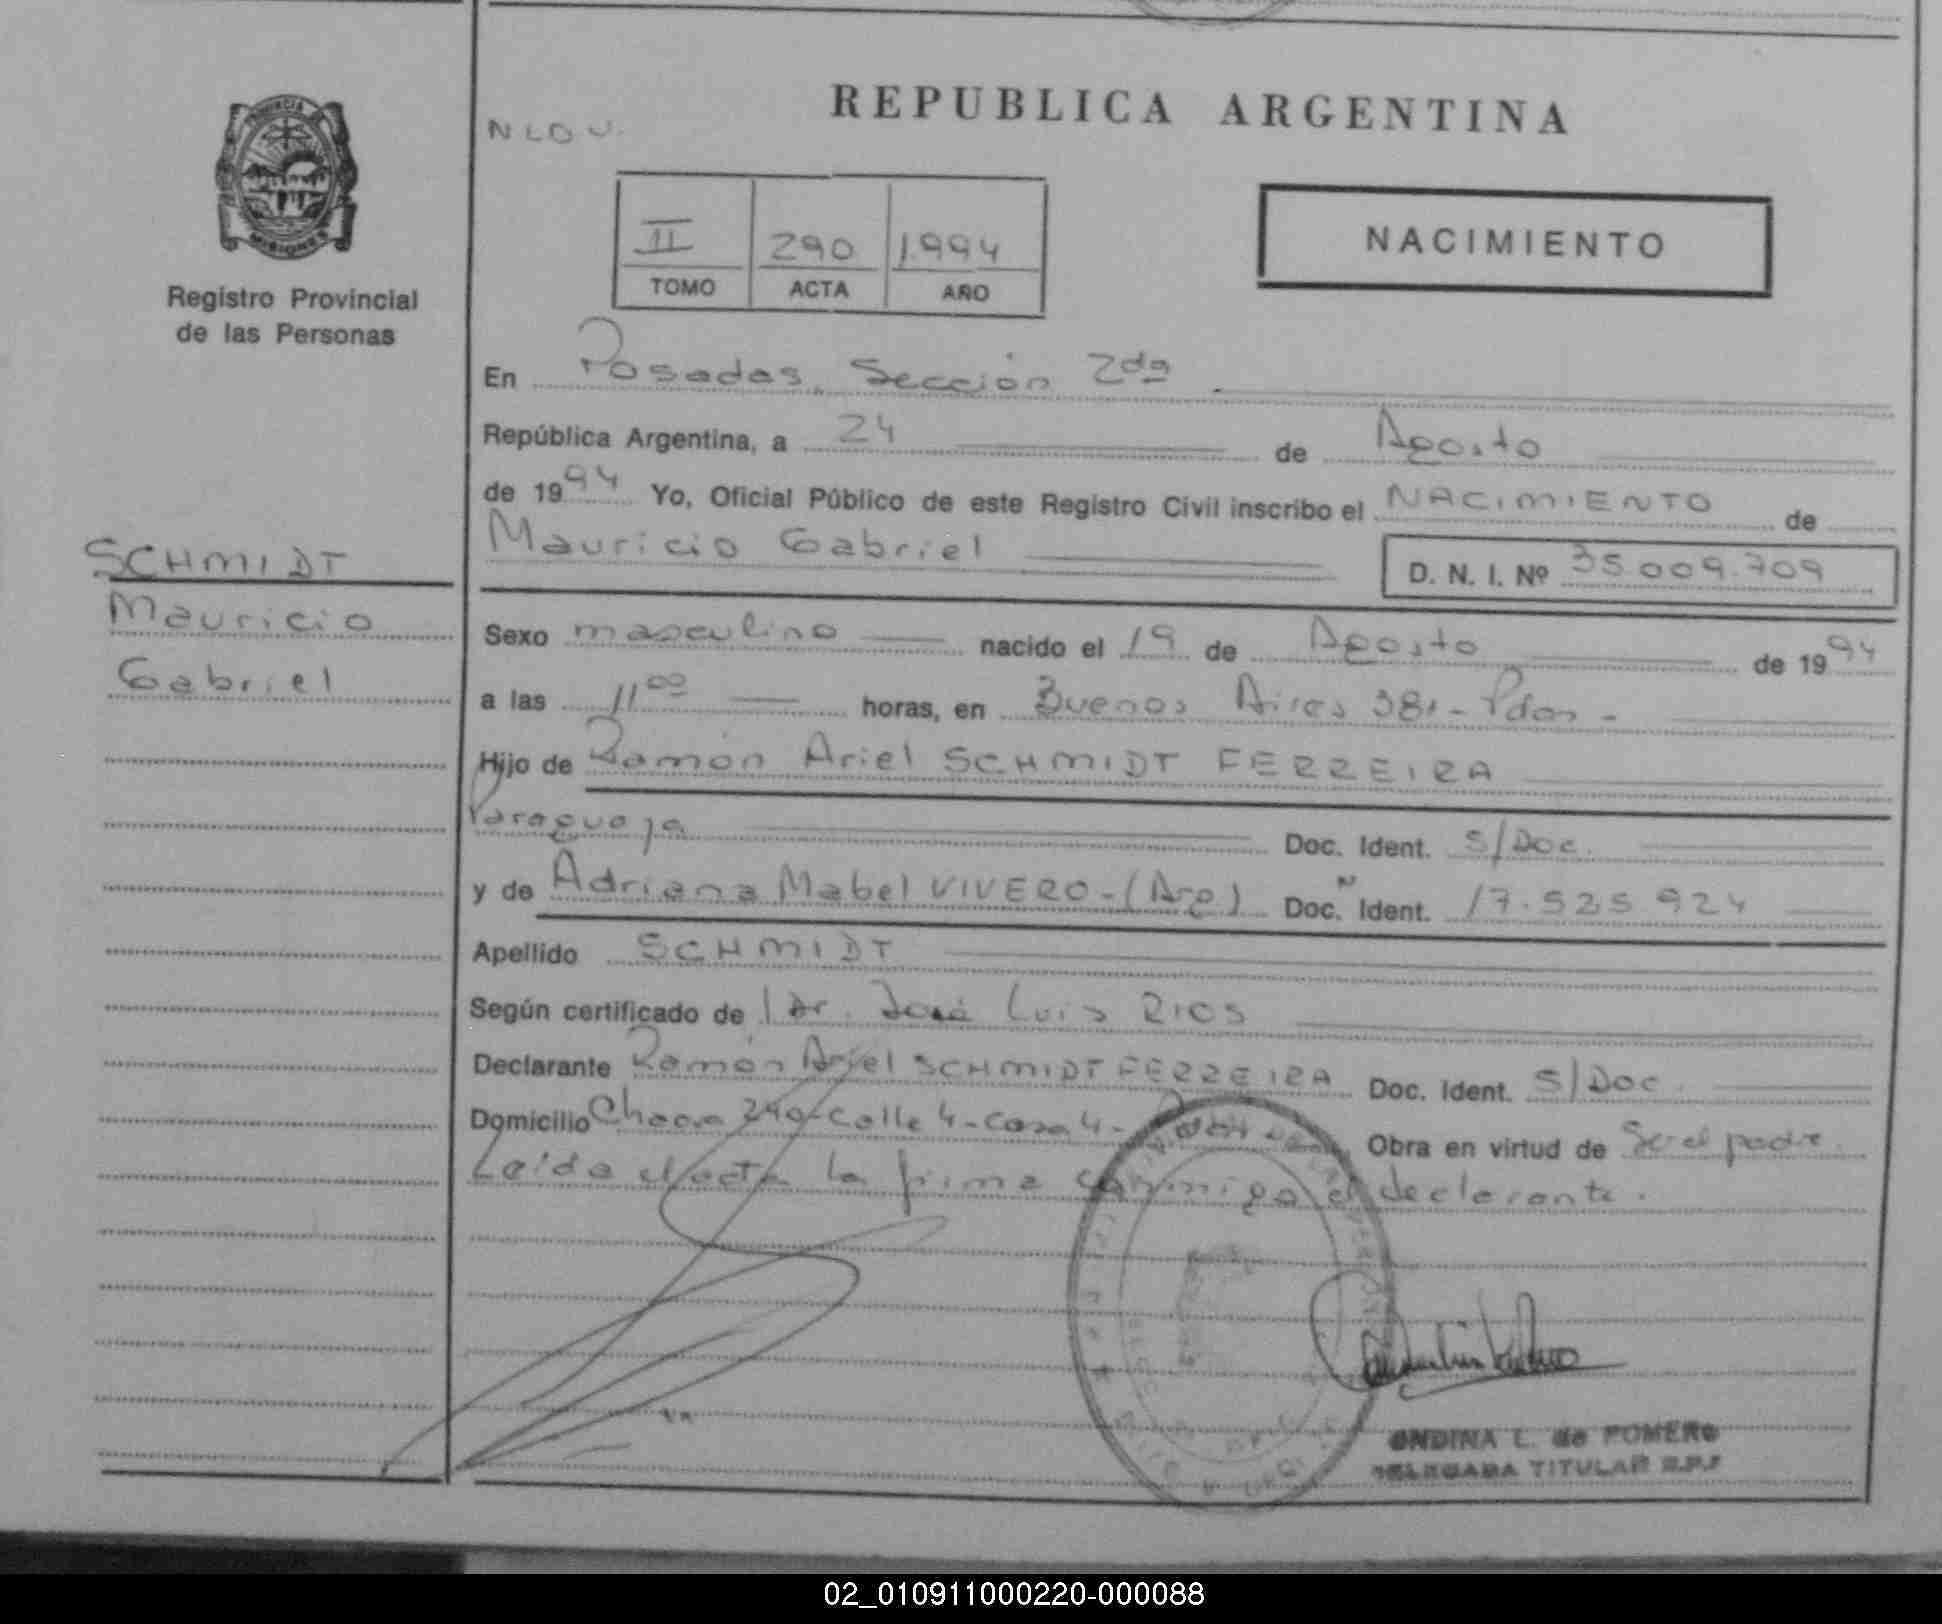 REPUBLICA ARGENTINA
N L O U.
PROVINCIA
MISIONES
Registro Provincial
de las Personas
II 290 1.994
TOMO ACTA AÑO
NACIMIENTO
En Posadas, Sección 2da
República Argentina, a 24 de Agosto
de 1994 Yo, Oficial Público de este Registro Civil inscribo el NACIMIENTO de
Mauricio Gabriel D. N. I. Nº 35.009.709
SCHMIDT
Mauricio
Gabriel
Sexo masculino nacido el 19 de Agosto de 1994
a las 11 00 horas, en Buenos Aires 381 - Pdas -
Hijo de Ramón Ariel SCHMIDT FERREIRA
Paraguaya Doc. Ident. S/Doc.
y de Adriana Mabel VIVERO - (Arg) Doc. Ident. 17.525.924
Apellido SCHMIDT
Según certificado de l Dr. José Luis RIOS
Declarante Ramón Ariel SCHMIDT FERREIRA Doc. Ident. S/Doc.
Domicilio Chacra 240 - Calle 4 - Casa 4 - Obra en virtud de Ser el padre.
Leída el acta la firma conmigo el declarante.
ONDINA L. de ROMERO
DELEGADA TITULAR R.P.P
02_010911000220-000088